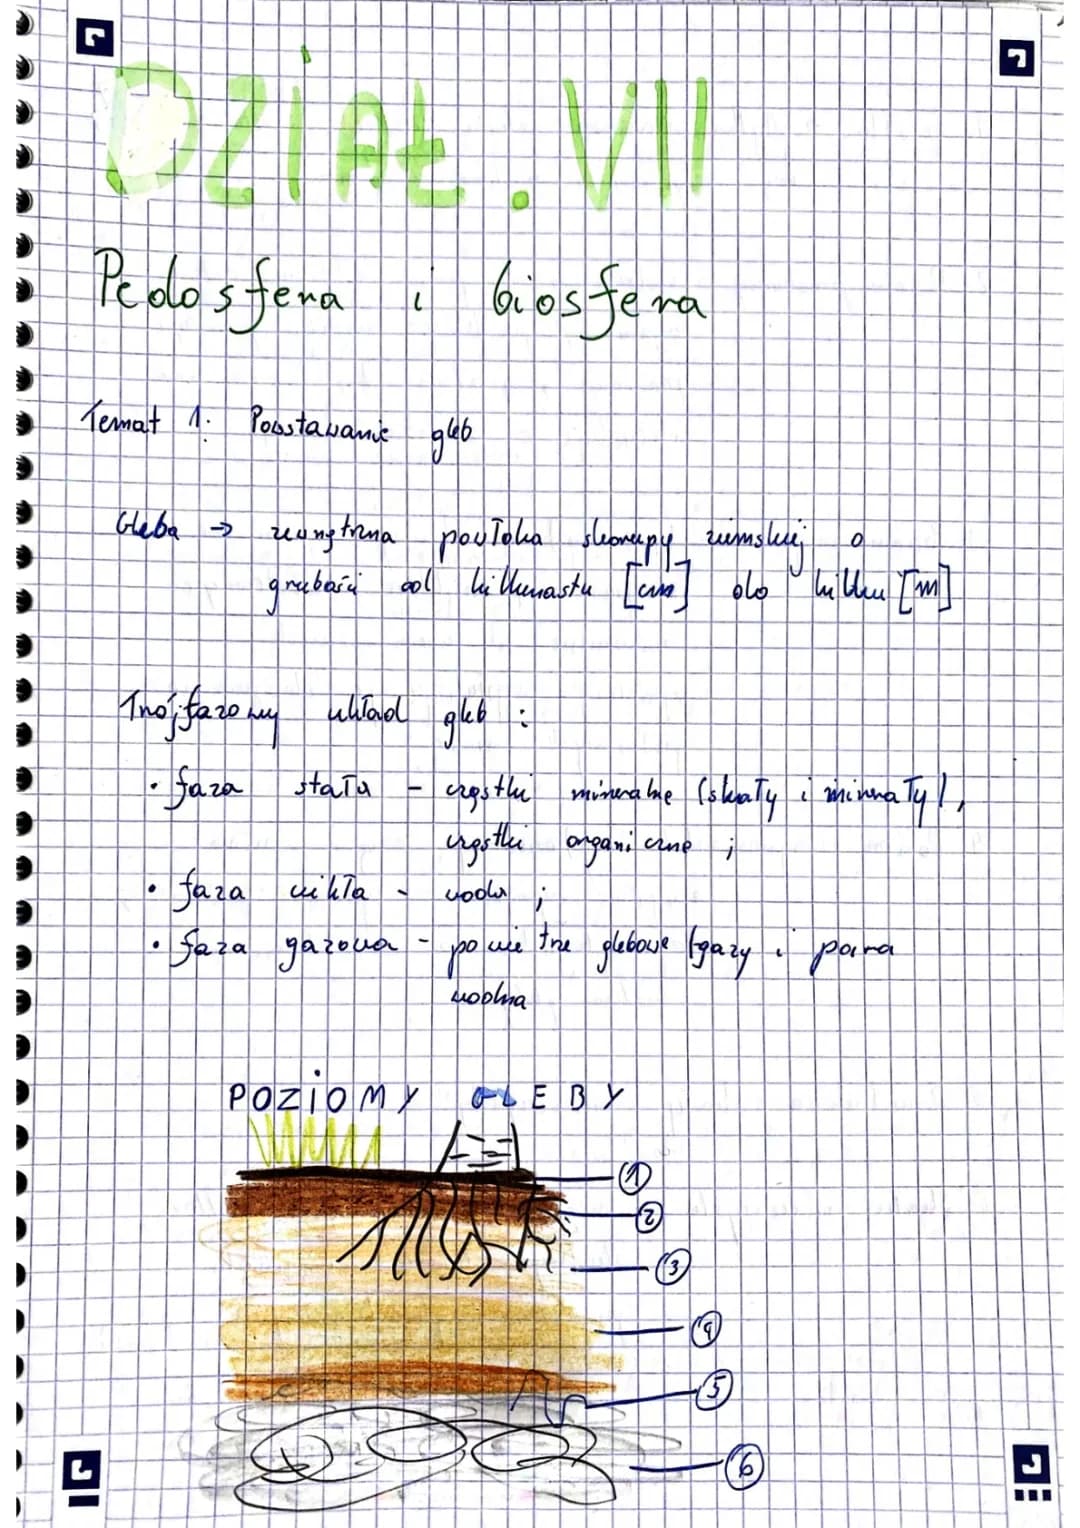 DZIAŁ. VII
Pedosfera i biosfera
Temat 1. Powstawanie gleb
Gleba → zewnętrzna powłoka skorupy ziemskiej o
grubości od kilkunastu [cm] do kilku [m]
Trójfazowy układ gleb :
• faza stała - cząstki mineralne (skały i minerały),
cząstki organiczne ;
• faza ciekła - woda ;
• faza gazowa - powietrze glebowe (gazy i para
wodna
POZIOMY GLEBY
1
2
3
4
5
6